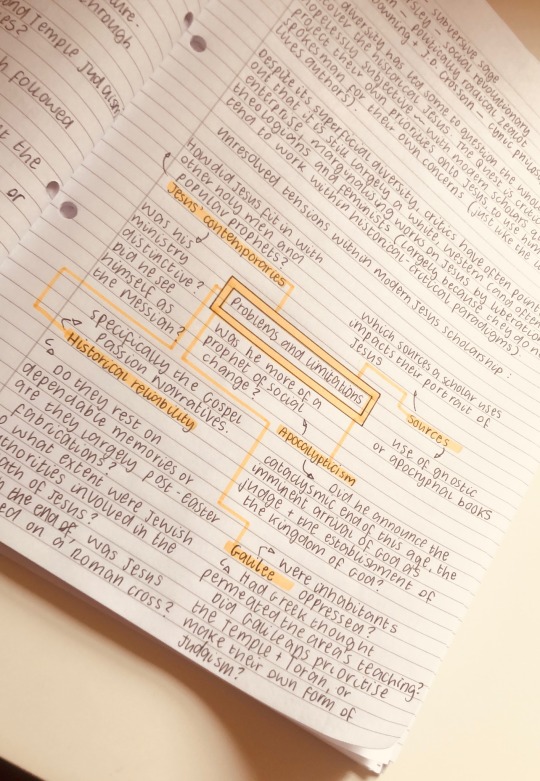 and Temple Judaism
es?
through
h followed
t the
or
sity - social revolutionary
subversive sage
Downing + Crossan - cynic philos
diversity has led some to question the whole
historical Jesus. The quest is
hopelessly subjective - with modern
project their own priorities onto Jesus
enterprise, scholars
spokesman for their own concerns (just like the
authors).
Despite its superficial diversity, critics have often point
out that it is still largely a white, western concern
theologians and feminists
marginalising works on Jesus by liberation
(largely because they do no
tend to work within historical critical paradigms)
unresolved tensions within modern Jesus scholarship:
How did Jesus fit in with
other holy men and
popular prophets?
Jesus' contemporaries
was his
ministry
distinctive?
Did he see
himself as
the Messiah?
Problems and limitations
was he more of a
prophet of social
change?
which sources a scholar uses
impacts their portrait of
Jesus
sources
use of gnostic
or apocryphal books
specifically the Gospel
Passion Narratives.
Historical reliability
Do they rest on
dependable memories or
are they largely post-easter
fabrications?
what extent were Jewish
authorities involved in the
ath of Jesus?
the end of, was Jesus
ed on a Roman cross?
Apocalypticism
Did he announce the
cataclysmic end of this age, the
imminent arrival of God as
judge + the establishment of
the kingdom of God?
Galilee
were inhabitants
oppressed?
Had Greek thought
permeated the area's teaching?
Did Galileans prioritise
the Temple + Torah, or
make their own form of
Judaism?